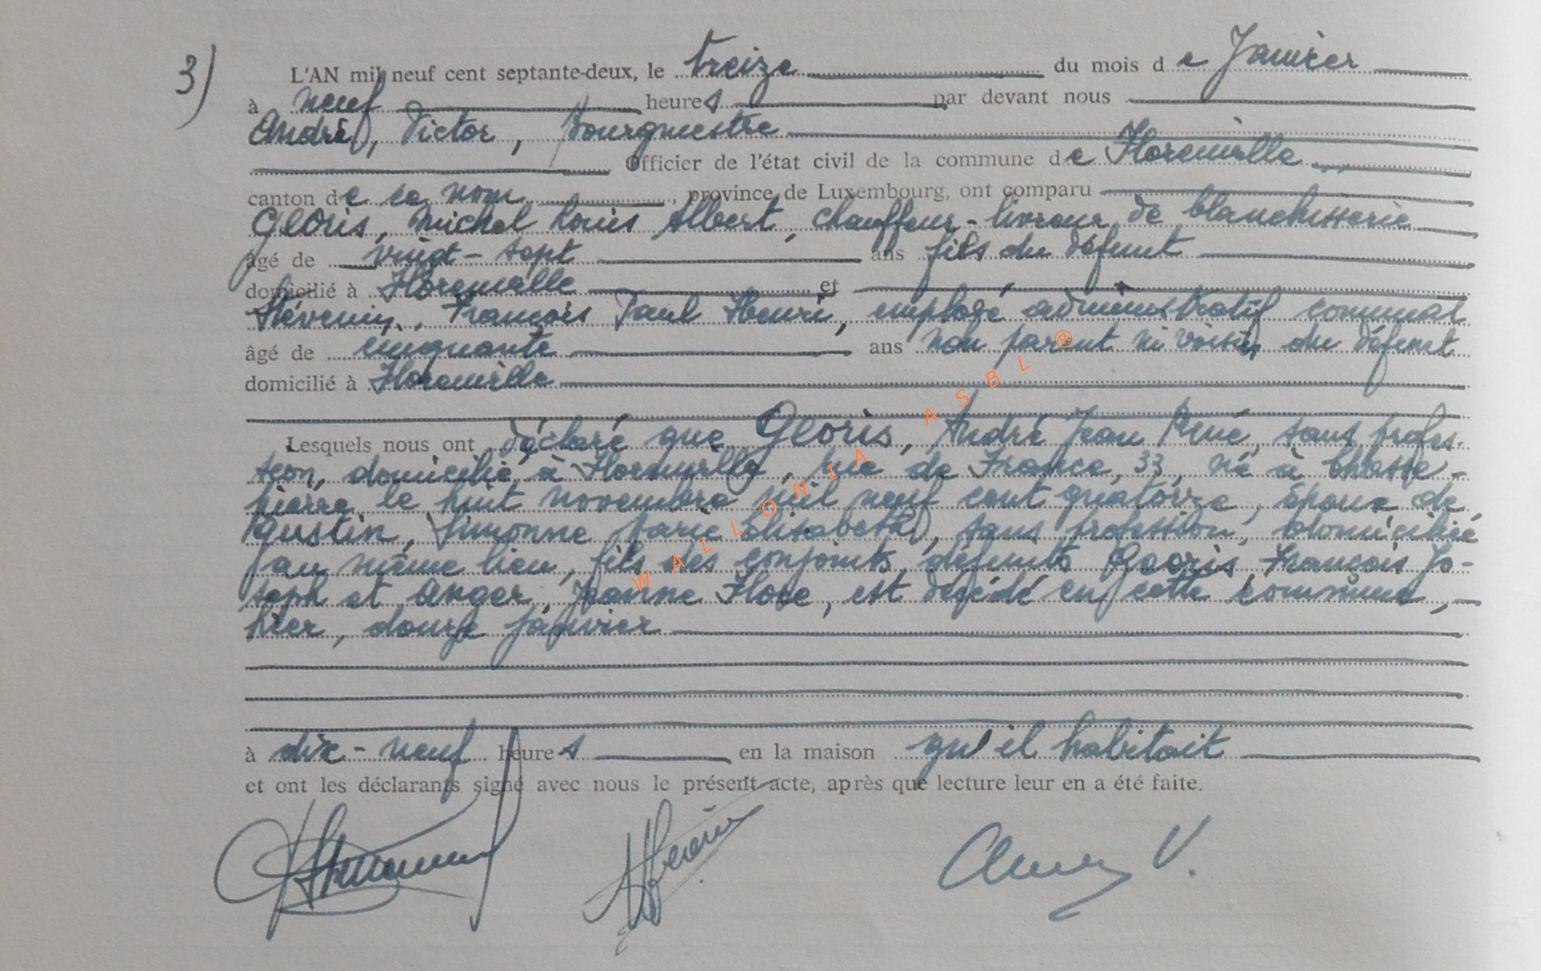 3) L'AN mil neuf cent septante-deux, le treize du mois de Janvier
à neuf heures par devant nous
André, Victor, bourgmestre
Officier de l'état civil de la commune de Florenville
canton de ce nom, province de Luxembourg, ont comparu
Georis, Michel Louis Albert, chauffeur-livreur de blanchisserie
âgé de vingt-sept ans fils du défunt
domicilié à Florenville et
Stévenin, François Paul Henri, employé administratif communal
âgé de cinquante ans non parent ni voisin du défunt
domicilié à Florenville
Lesquels nous ont déclaré que Georis, André Jean René, sans profes-
sion, domicilié à Florenville, rue de France, 33, né à Chasse-
pierre le huit novembre mil neuf cent quatorze, époux de
Gustin, Simonne Marie Elisabeth, sans profession, domiciliée
au même lieu, fils des conjoints défunts Georis François Jo-
seph et Anger, Jeanne Flore, est décédé en cette commune,
hier, douze janvier
à dix-neuf heures en la maison qu'il habitait
et ont les déclarants signé avec nous le présent acte, après que lecture leur en a été faite.
WALLONIA ASBL ®